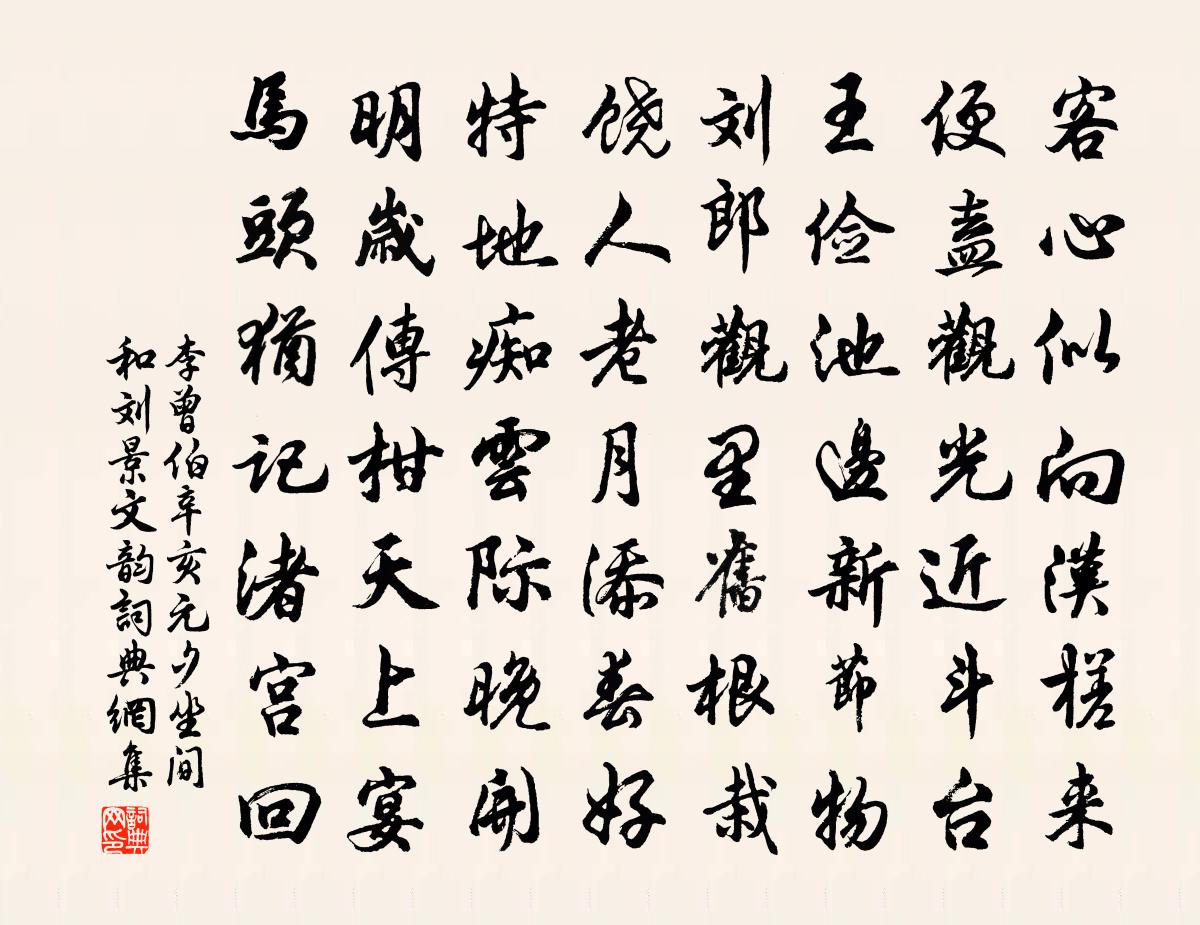 客心似向漢槎来
便盍觀光近斗台
王俭池邊新節物
刘郎觀里舊根栽
饶人老月添春好
特地痴雲际晚開
明歲傳柑天上宴
馬頭猶记渚宫回
李曾伯辛亥元夕坐间
和刘景文韵詞典網集
詞典网印